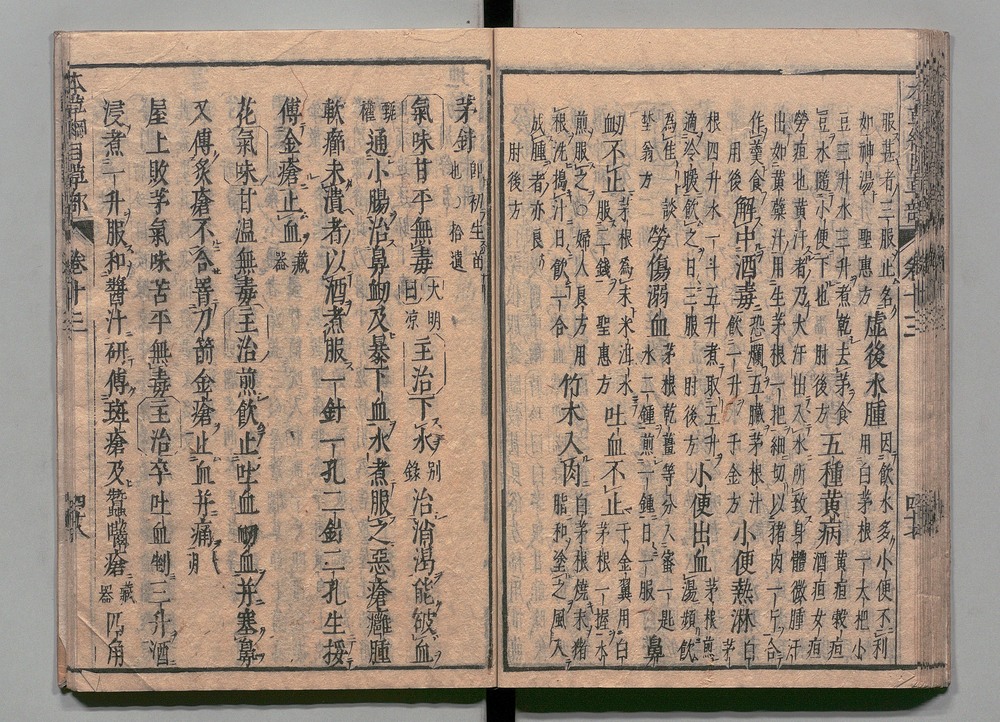 本草綱目草部 卷十三
服甚者三服止名
如神湯 聖惠方 虛後水腫 因飲水多小便不利
用白茅根一大把小
豆三升水三升煮乾去茅食
豆水隨小便下也 肘後方 五種黃病 黃疸穀疸
酒疸女疸
勞疸也黃汗者乃大汗出入水所致身體微腫汗
出如黃蘗汁用生茅根一把細切以猪肉一斤合
作羹食 肘後方 解中酒毒 恐爛五臟茅根汁
飲一升 千金方 小便熱淋 白茅
根四升水一斗五升煮取五升
適冷暖飲之日三服 肘後方 小便出血 茅根煎
湯頻飲
為佳 談
埜翁方 勞傷溺血 茅根乾薑等分入蜜一匙
水二鍾煎一鍾日一服 鼻
衂不止 茅根為末米泔水
服二錢 聖惠方 吐血不止 千金翼用白
茅根一握水
煎服之○婦人良方用
根洗搗汁日飲一合 竹木入肉 白茅根燒末豬
脂和塗之風入
成腫者亦良
肘後方
茅針 即初生苗
也 拾遺
氣味甘平無毒 大明
曰凉 主治下水 別
錄 治消渴能破血 甄
權 通小腸治鼻衂及暴下血水煮服之惡瘡癰腫
軟癤未潰者以酒煮服一針一孔二針二孔生挼
傅金瘡止血 藏
器
花氣味甘温無毒主治煎飲止吐血衂血并塞鼻
又傅灸瘡不合署刀箭金瘡止血并痛 大明
屋上敗茅氣味苦平無毒主治卒吐血剉三升酒
浸煮一升服和醬汁研傅斑瘡及蠶囓瘡 藏
器 四角
本草綱目草部 卷十三